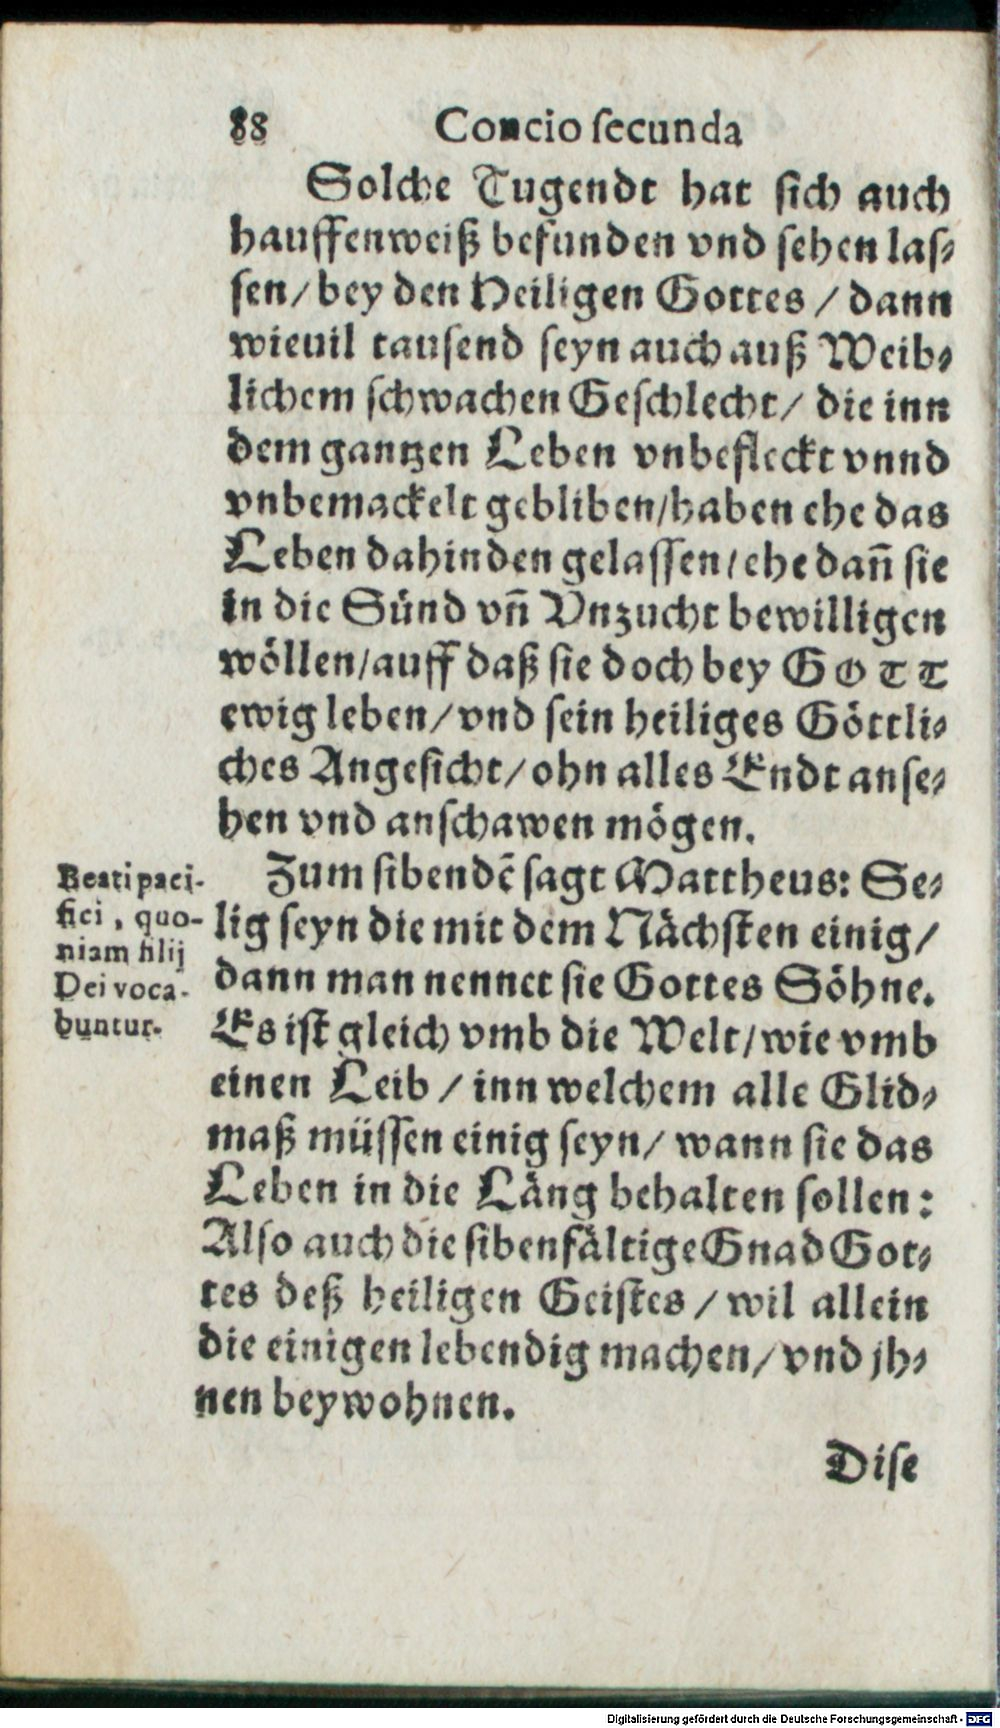 88 Concio secunda
Solche Tugendt hat sich auch
hauffenweiß befunden vnd sehen las-
sen/ bey den Heiligen Gottes / dann
wieuil tausend seyn auch auß Weib-
lichem schwachen Geschlecht/ die inn
dem gantzen Leben vnbefleckt vnnd
vnbemackelt gebliben/haben ehe das
Leben dahinden gelassen/ehe dañ sie
in die Sünd vñ Vnzucht bewilligen
wöllen/auff daß sie doch bey GOTT
ewig leben/vnd sein heiliges Göttli-
ches Angesicht/ohn alles Endt anse-
hen vnd anschawen mögen.
Zum sibendẽ sagt Mattheus: Se-
lig seyn die mit dem Nächsten einig/
dann man nennet sie Gottes Söhne.
Es ist gleich vmb die Welt/wie vmb
einen Leib / inn welchem alle Glid-
maß müssen einig seyn/ wann sie das
Leben in die Läng behalten sollen:
Also auch die sibenfältige Gnad Got-
tes deß heiligen Geistes / wil allein
die einigen lebendig machen/vnd jh-
nen beywohnen.
Beati paci-
fici, quo-
niam filij
Dei voca-
buntur.
Dise
Digitalisierung gefördert durch die Deutsche Forschungsgemeinschaft - DFG